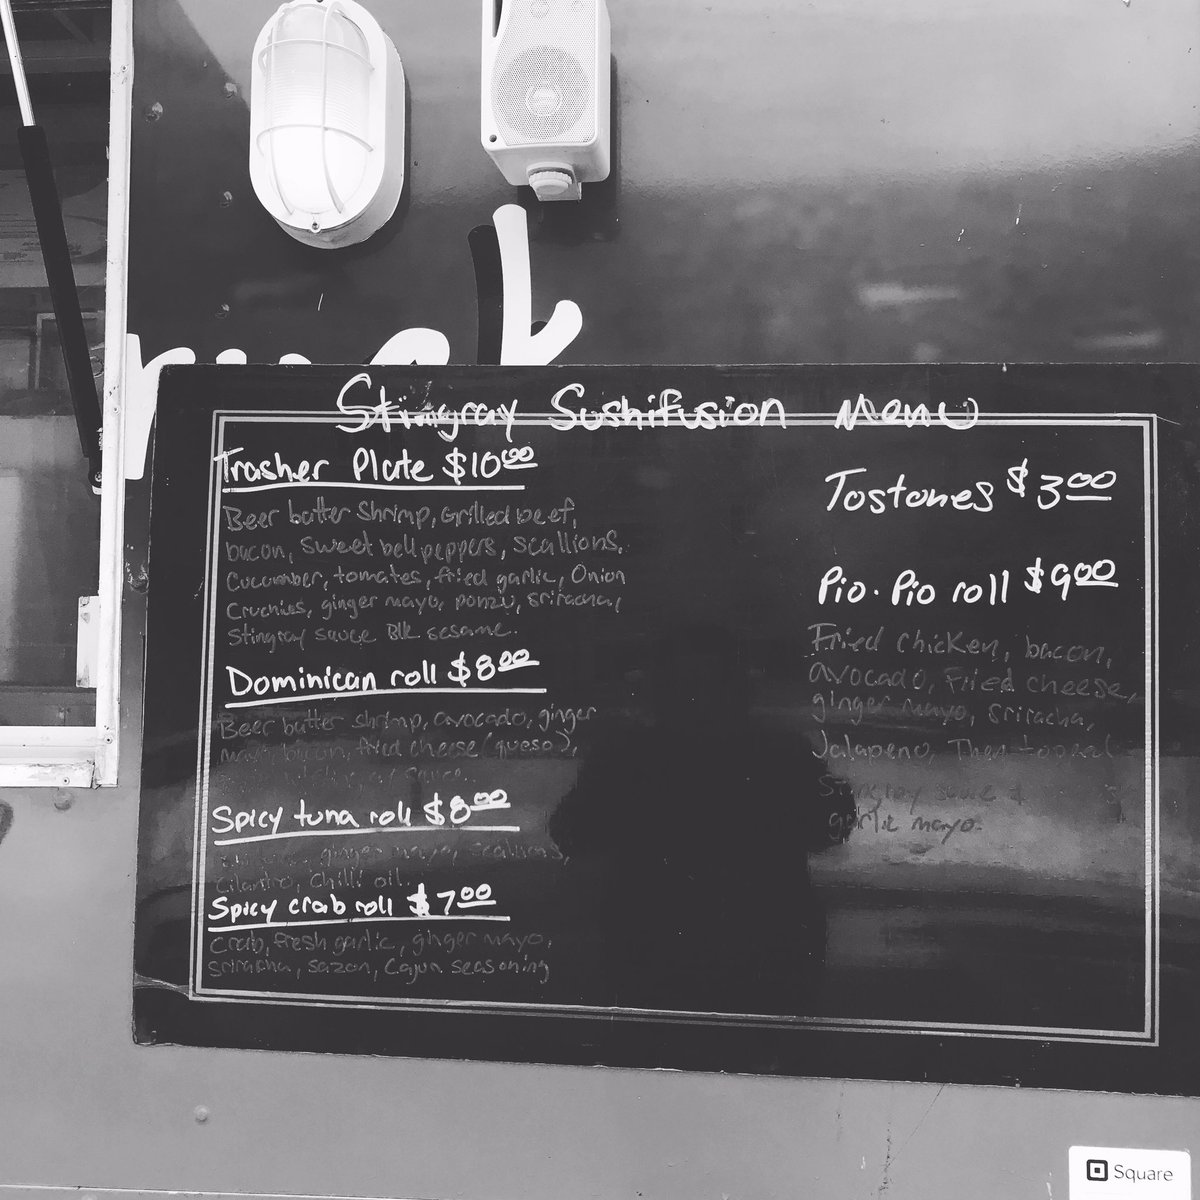 Stingray Sushifusion Menu
Trasher Plate $10.00
Beer batter Shrimp, Grilled beef,
bacon, Sweet bell peppers, Scallions,
Cucumber, tomatoes, fried garlic, Onion
Cruchies, ginger mayo, ponzu, sriracha,
Stingray sauce Blk sesame.
Dominican roll $8.00
Beer batter shrimp, avocado, ginger
mayo, bacon, fried cheese (queso),
sauce.
Spicy tuna roll $8.00
ginger mayo, scallions,
Cilantro, Chilli oil.
Spicy crab roll $7.00
Crab, fresh garlic, ginger mayo,
Sriracha, sazon, Cajun seasoning
Tostones $3.00
Pio.Pio roll $9.00
Fried Chicken, bacon,
avocado, Fried cheese,
ginger mayo, sriracha,
Jalapeno, Then topped
Stingray sauce &
garlic mayo.
Square